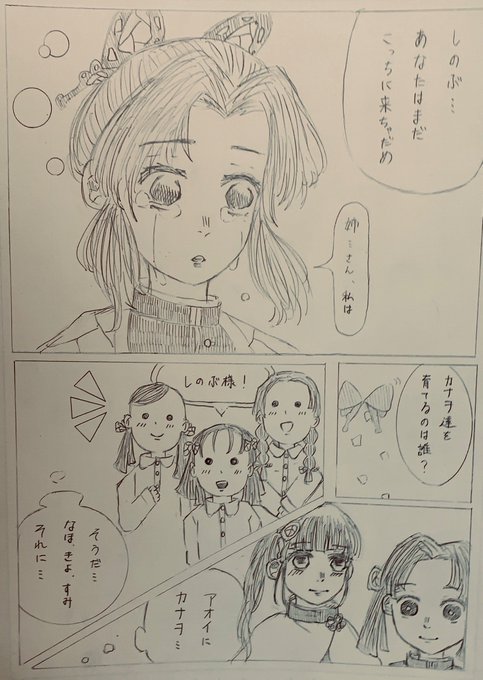 しのぶ…
あなたはまだ
こっちに来ちゃだめ
姉…さん、私は
カナヲ達を
育てるのは誰？
しのぶ様！
そうだ…
なほ、きよ、すみ
それに…
アオイに
カナヲ…